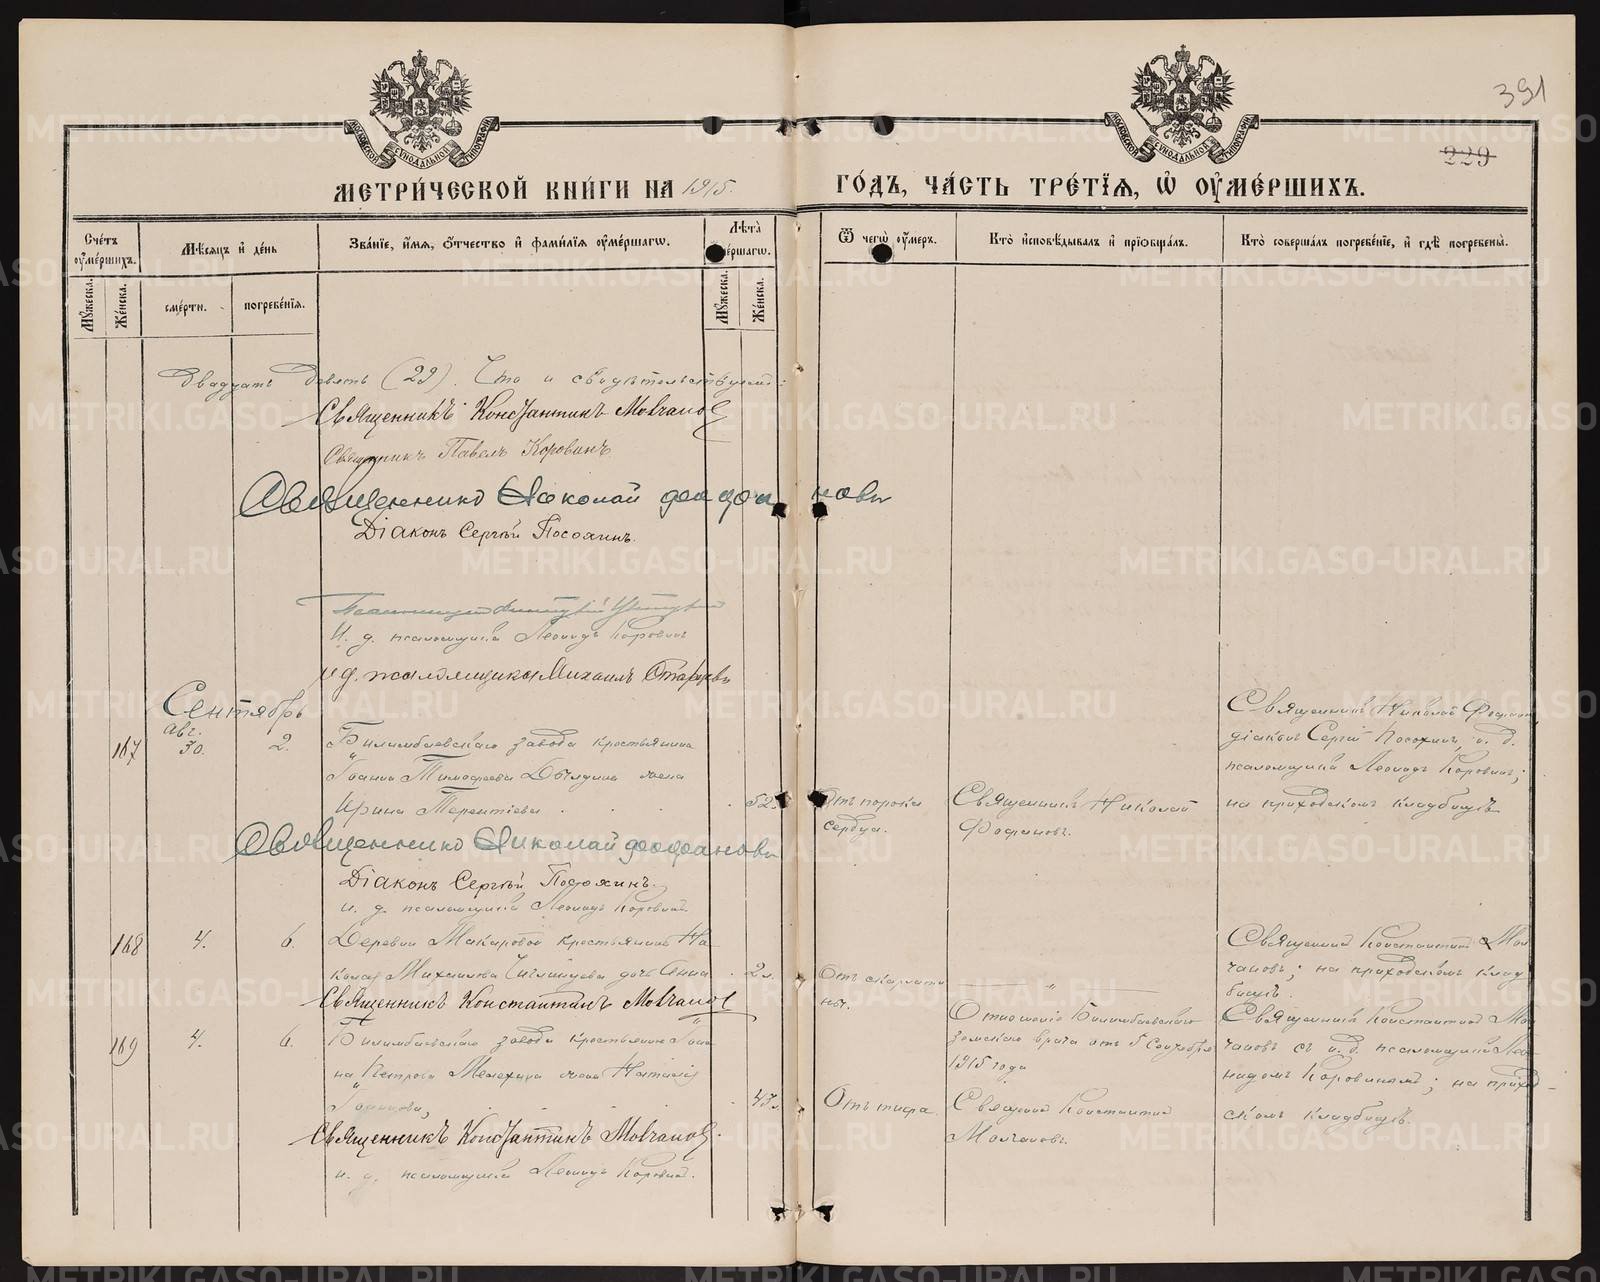 391
229
МЕТРИ́ЧЕСКОЙ КНИ́ГИ НА 1915.
ГО́ДЪ, ЧА́СТЬ ТРЕ́ТІЯ, Ѡ҆ ОУ҆МЕ́РШИХЪ.
Сче́тъ оу҆ме́ршихъ.
Мѣ́сяцъ и҆ де́нь
Зва́ніе, и҆́мя, ѻ҆́тчество и҆ фами́лія оу҆ме́ршагѡ.
Лѣ́та оу҆ме́ршагѡ.
Ѿ чегѡ̀ оу҆́меръ.
Кто̀ и҆сповѣ́дывалъ и҆ прїѻбща́лъ.
Кто̀ соверша́лъ погребе́ніе, и҆ гдѣ̀ погребены̀.
Мꙋ́жеска.
Же́нска.
сме́рти.
погребе́нія.
Мꙋ́жеска.
Же́нска.
двадцать девять (29). Что и свидѣтельствуемъ:
Священникъ Константинъ Молчановъ
Священникъ Павелъ Коровинъ
Священникъ Николай Феофановъ
Діаконъ Сергѣй Посохинъ.
И. д. псаломщика Леонидъ Коровинъ
И д. псаломщика Михаилъ Старцевъ
Сентябрь
167
авг. 30.
2.
Билимбаевскаго завода крестьянина
Іоанна Тимофеева жена
Ирина Терентіева
52.
Отъ порока
сердца.
Священникъ Николай
Феофановъ.
Священникъ Николай Феофановъ
діаконъ Сергій Посохинъ, и. д.
псаломщика Леонидъ Коровинъ;
на приходскомъ кладбищѣ
Священникъ Николай Феофановъ
Діаконъ Сергѣй Посохинъ.
и. д. псаломщика Леонидъ Коровинъ
168
4.
6.
Деревни Макаровой крестьянина Ни-
колая Михаилова дочь Анна
2 л.
Отъ скарлати-
ны.
"
Священникъ Константинъ Мол-
чановъ; на приходскомъ клад-
бищѣ.
Священникъ Константинъ Молчановъ
169
4.
6.
Билимбаевскаго завода крестьянина Іоан-
на Петрова Мелехина жена Наталія
47.
Отъ тифа
Отношеніе Билимбаевскаго
земскаго врача отъ 5 Сентября
1915 года
Священникъ Константинъ
Молчановъ.
Священникъ Константинъ Мол-
чановъ съ и. д. псаломщика Лео-
нидомъ Коровинымъ; на приход-
скомъ кладбищѣ.
Священникъ Константинъ Молчановъ.
и. д. псаломщика Леонидъ Коровинъ.
METRIKI.GASO-URAL.RU